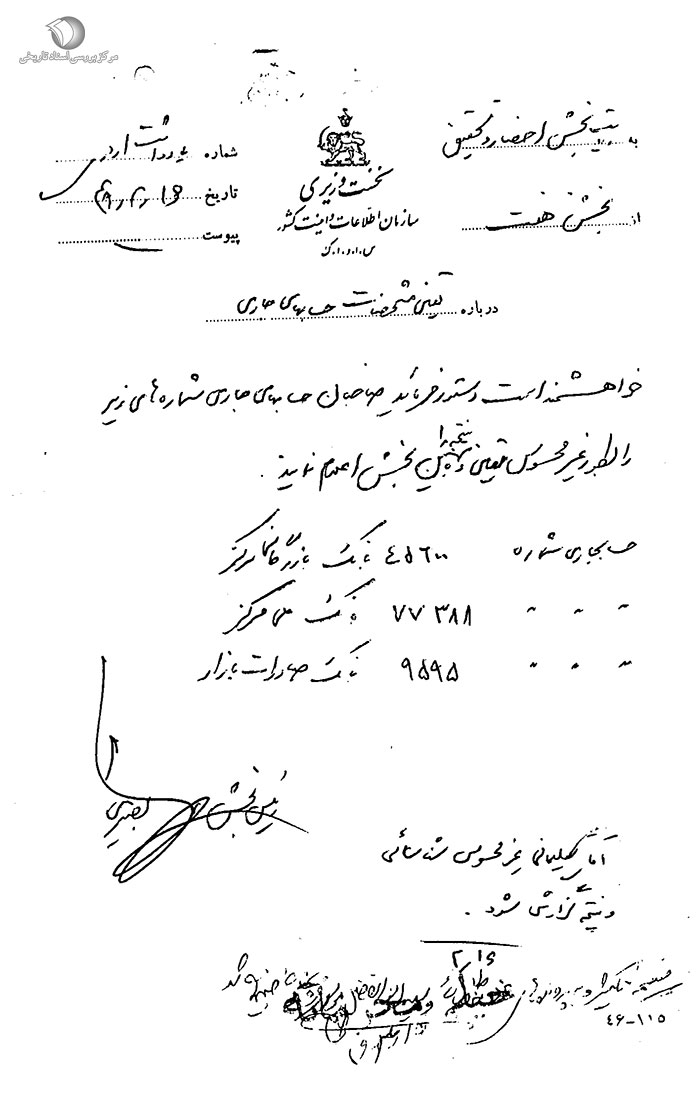 مرکز بررسی اسناد تاریخی
به بخش احضار و تحقیق
از بخش هفت
نخست وزیری
سازمان اطلاعات و امنیت کشور
س.ا.و.ا.ک
شماره یادداشت اداری
تاریخ
پیوست
درباره تعیین مشخصات حسابهای جاری
خواهشمند است دستور فرمائید صاحبان حسابهای جاری شماره های زیر
را بطور غیر محسوس تعیین و نتیجه را باین بخش اعلام نمایند.
حساب جاری شماره ٤٥٦٠٠ بانک بازرگانی مرکز
" " " ۷۷۳۸۸ بانک ملی مرکز
" " " ۹۵۹۵ بانک صادرات بازار
رئیس بخش بصیری
آقای سلیمانی غیر محسوس شناسائی
و نتیجه گزارش شود.
۲/۱۶
٤٦-۱۱۵